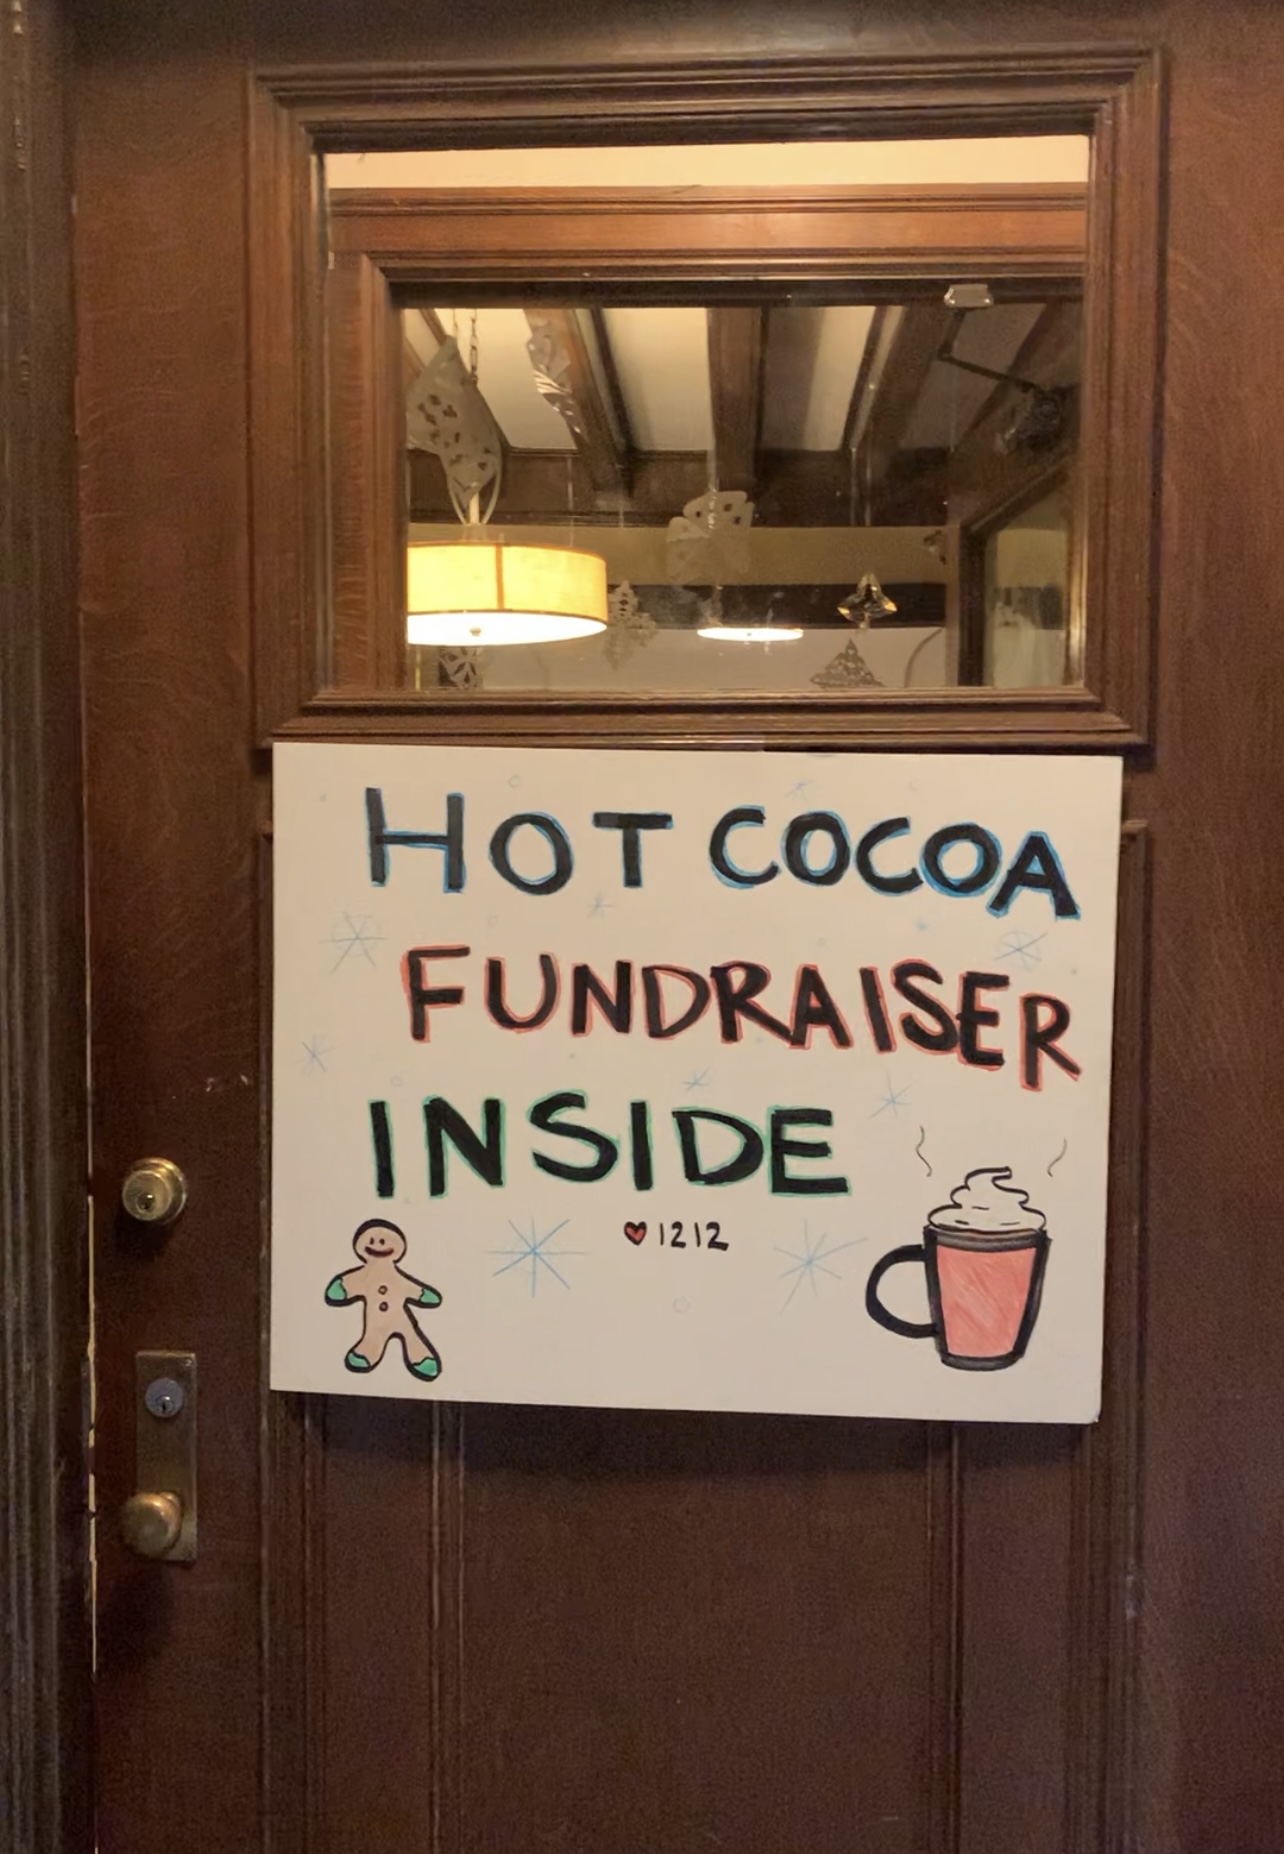 HOT COCOA
FUNDRAISER
INSIDE
♥ 1212